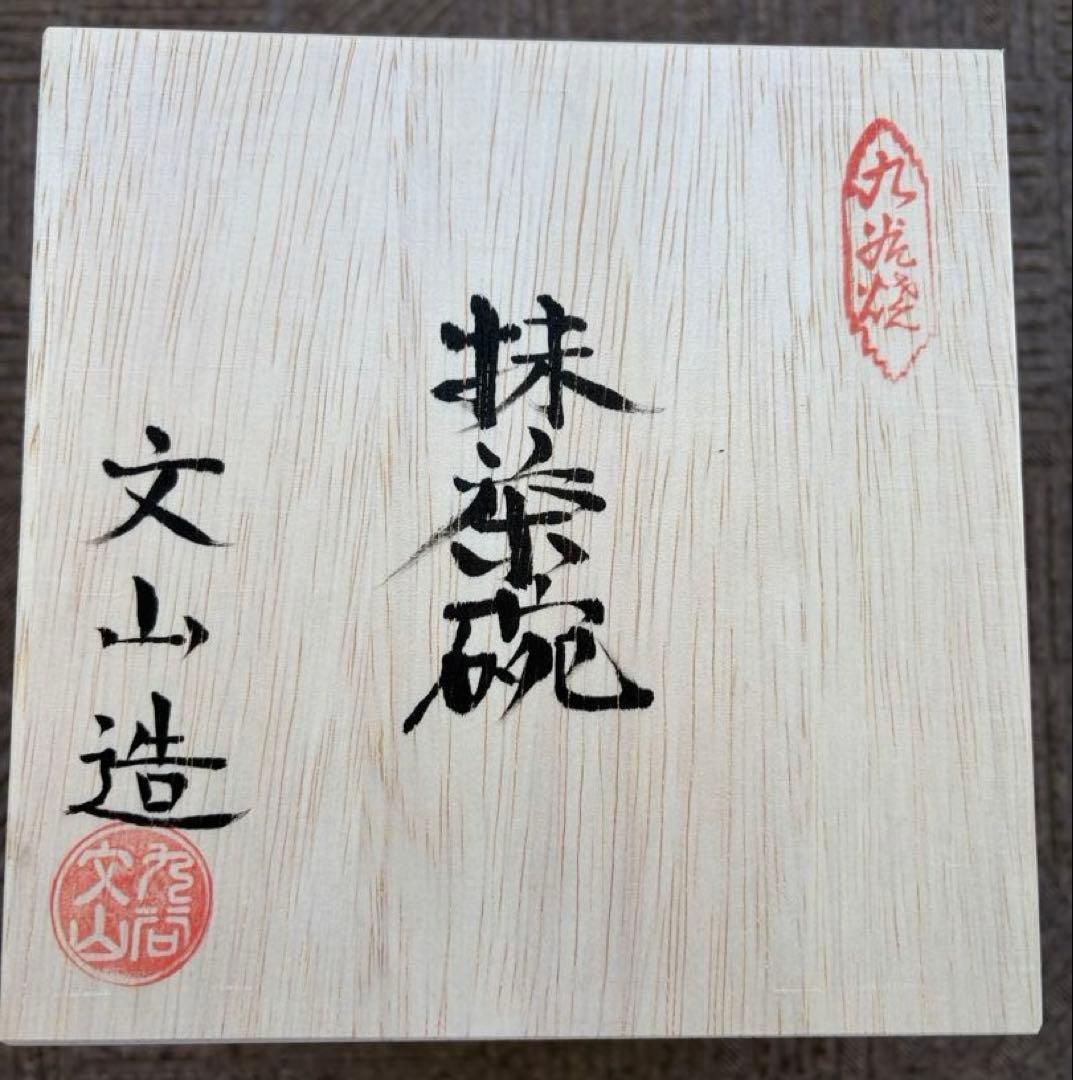 九谷焼
抹茶碗
文山造
九谷
文山